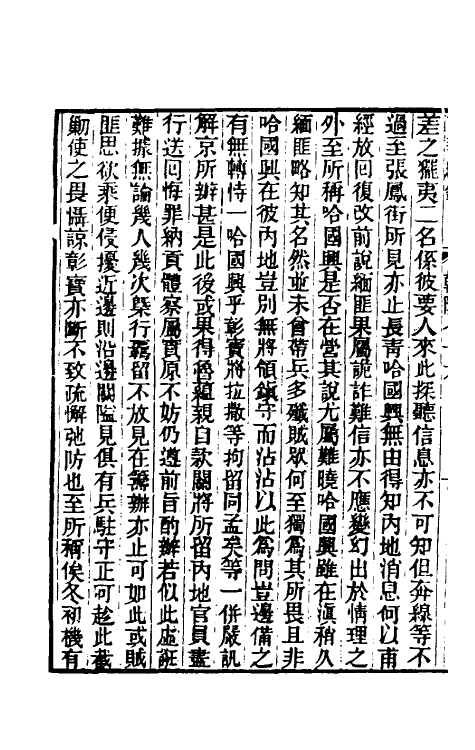 差之擺夷二名係彼要人來此探聽信息亦不可知但奔線等不
過至張鳳街所見亦止長靑哈國興無由得知內地消息何以甫
經放回復改前說緬匪果屬詭詐難信亦不應變幻出於情理之
外至所稱哈國興是否在營其說尤屬難曉哈國興雖在滇稍久
緬匪略知其名然並未曾帶兵多殲賊眾何至獨爲其所畏且非
哈國興在彼內地豈別無將領鎮守而沾沾以此爲問豈邊備之
有無轉恃一哈國興乎彰寶將拉撒等拘留同孟矣等一併嚴訊
解京所辦甚是此後或果得魯蘊親自款關將所留內地官員盡
行送回悔罪納貢體察屬實原不妨仍遵前旨酌辦若似此虛誑
難據無論幾人幾次槩行羈留不放見在籌辦亦止可如此或賊
匪思欲乘便侵擾近邊則沿邊關隘見俱有兵駐守正可趁此截
勦使之畏懾諒彰寶亦斷不致疏懈弛防也至所稱俟冬初機有